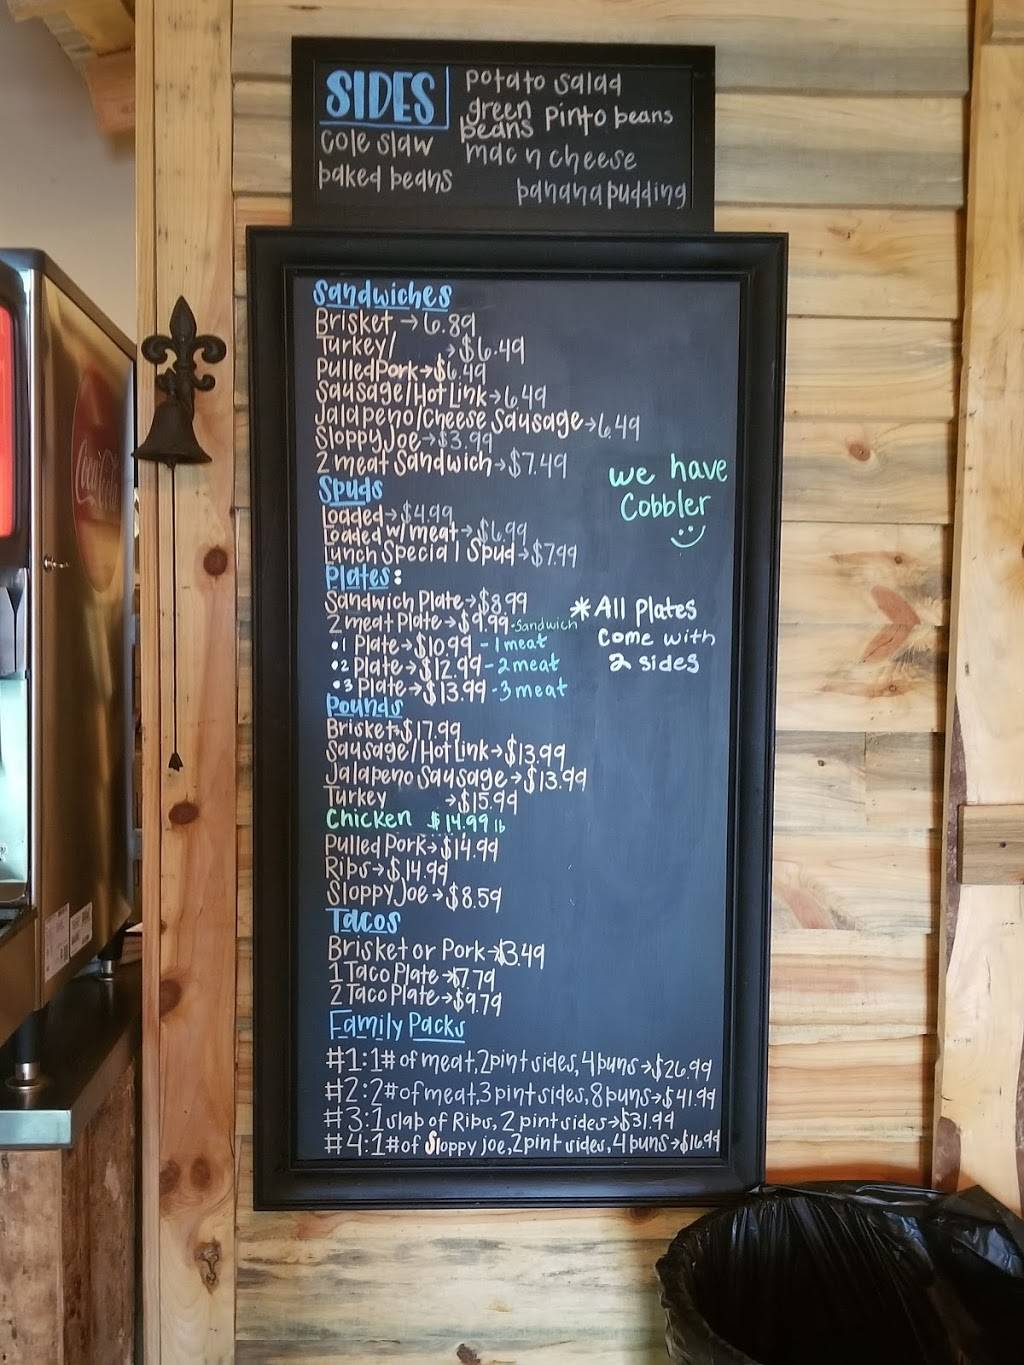 SIDES
potato salad
green beans pinto beans
cole slaw
mac n cheese
baked beans
banana pudding
Sandwiches
Brisket → 6.89
Turkey/ → $6.49
Pulled Pork → $6.49
Sausage/Hot Link → 6.49
Jalapeno/Cheese Sausage → 6.49
Sloppy Joe → $3.99
2 meat Sandwich → $7.49
we have
Cobbler
Spuds
Loaded → $4.99
Loaded w/ meat → $6.99
Lunch Special Spud → $7.99
Plates:
Sandwich Plate → $8.99
2 meat Plate → $9.99 - Sandwich
•1 Plate → $10.99 - 1 meat
•2 Plate → $12.99 - 2 meat
•3 Plate → $13.99 - 3 meat
* All Plates
come with
2 sides
Pounds
Brisket → $17.99
Sausage/Hot Link → $13.99
Jalapeno Sausage → $13.99
Turkey → $15.99
Chicken $14.99 lb
Pulled Pork → $14.99
Ribs → $14.99
Sloppy Joe → $8.59
Tacos
Brisket or Pork → $3.49
1 Taco Plate → $7.79
2 Taco Plate → $9.79
Family Packs
#1: 1# of meat, 2 pint sides, 4 buns → $26.99
#2: 2# of meat, 3 pint sides, 8 buns → $41.99
#3: 1 slab of Ribs, 2 pint sides → $31.99
#4: 1# of Sloppy joe, 2 pint sides, 4 buns → $16.99
Coca-Cola